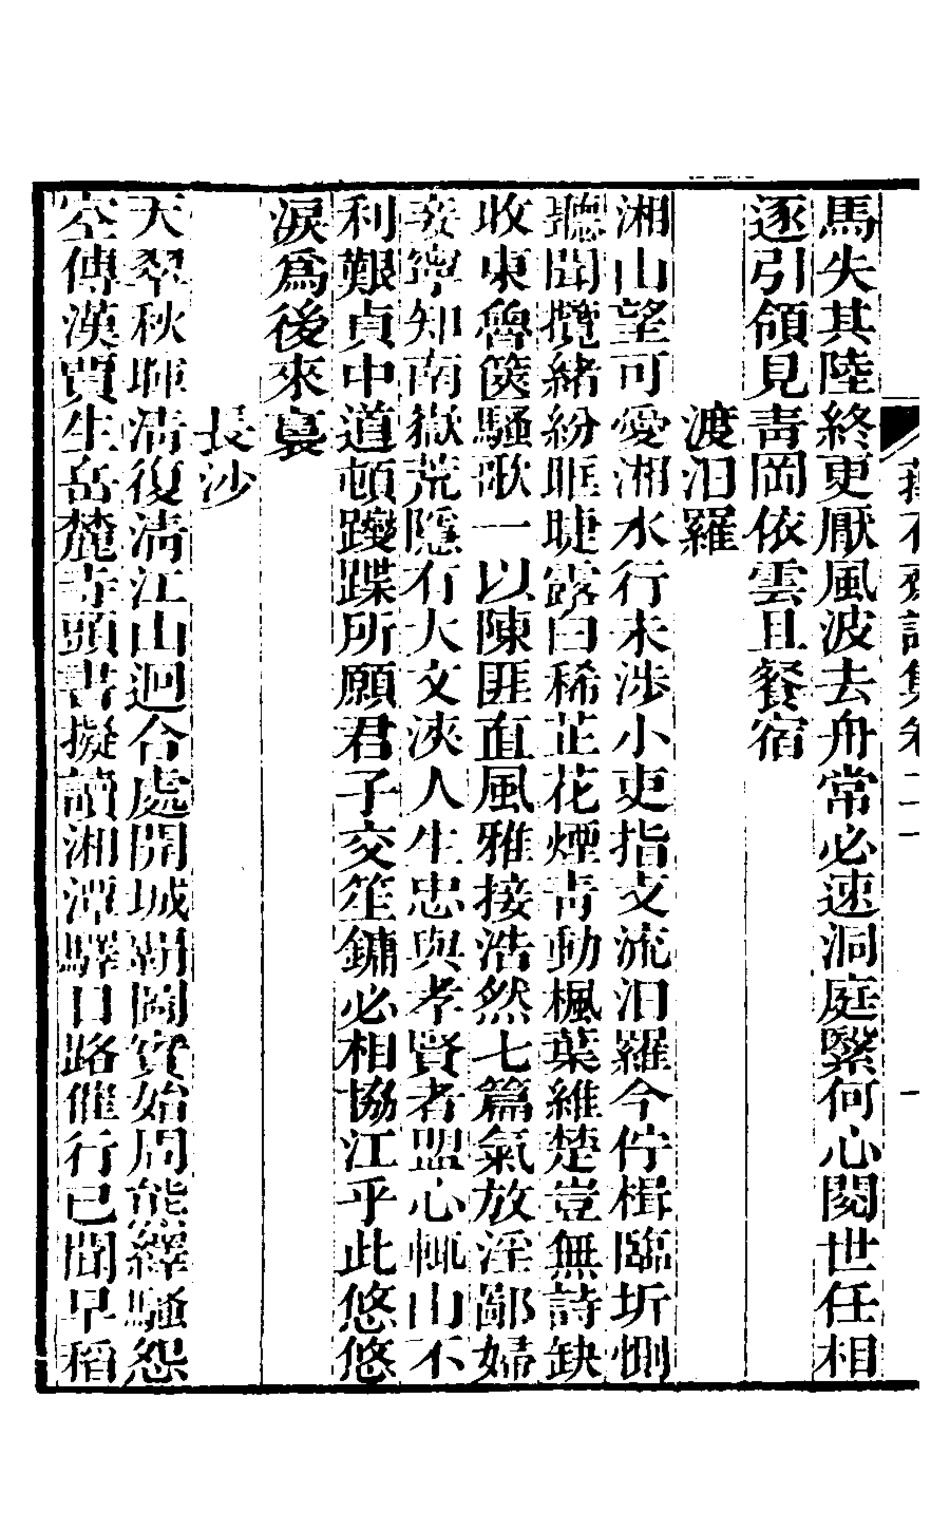 馬失其陸終更厭風波去舟常必速洞庭繄何心閱世任相
逐引領見靑岡依雲且餐宿
渡汨羅
湘山望可愛湘水行未涉小吏指支流汨羅今佇楫臨圻惻
聽聞攬緒紛眶睫露白稀芷花煙靑動楓葉維楚豈無詩缺
收東魯篋騷歌一以陳匪直風雅接浩然七篇氣放淫鄙婦
妾寧知南嶽荒隱有大文浹人生忠與孝賢者盟心輒山不
利艱貞中道頓躞蹀所願君子交笙鏞必相協江乎此悠悠
淚爲後來裛
長沙
天翠秋暉淸復淸江山迴合處開城霸圖實始周熊繹騷怨
空傳漢賈生岳麓寺頭書擬讀湘潭驛口路催行已聞早稻